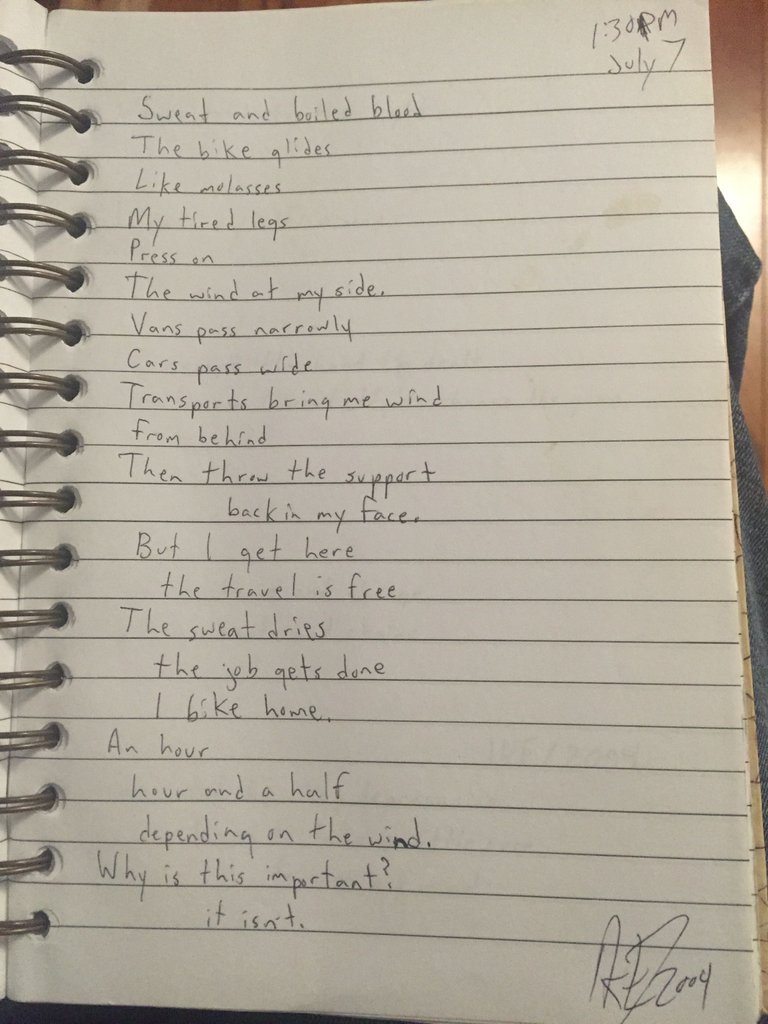 1:30PM
July 7
Sweat and boiled blood
The bike glides
Like molasses
My tired legs
Press on
The wind at my side.
Vans pass narrowly
Cars pass wide
Transports bring me wind
from behind
Then throw the support
back in my face.
But I get here
the travel is free
The sweat dries
the job gets done
I bike home.
An hour
hour and a half
depending on the wind.
Why is this important?
it isn't.
2004